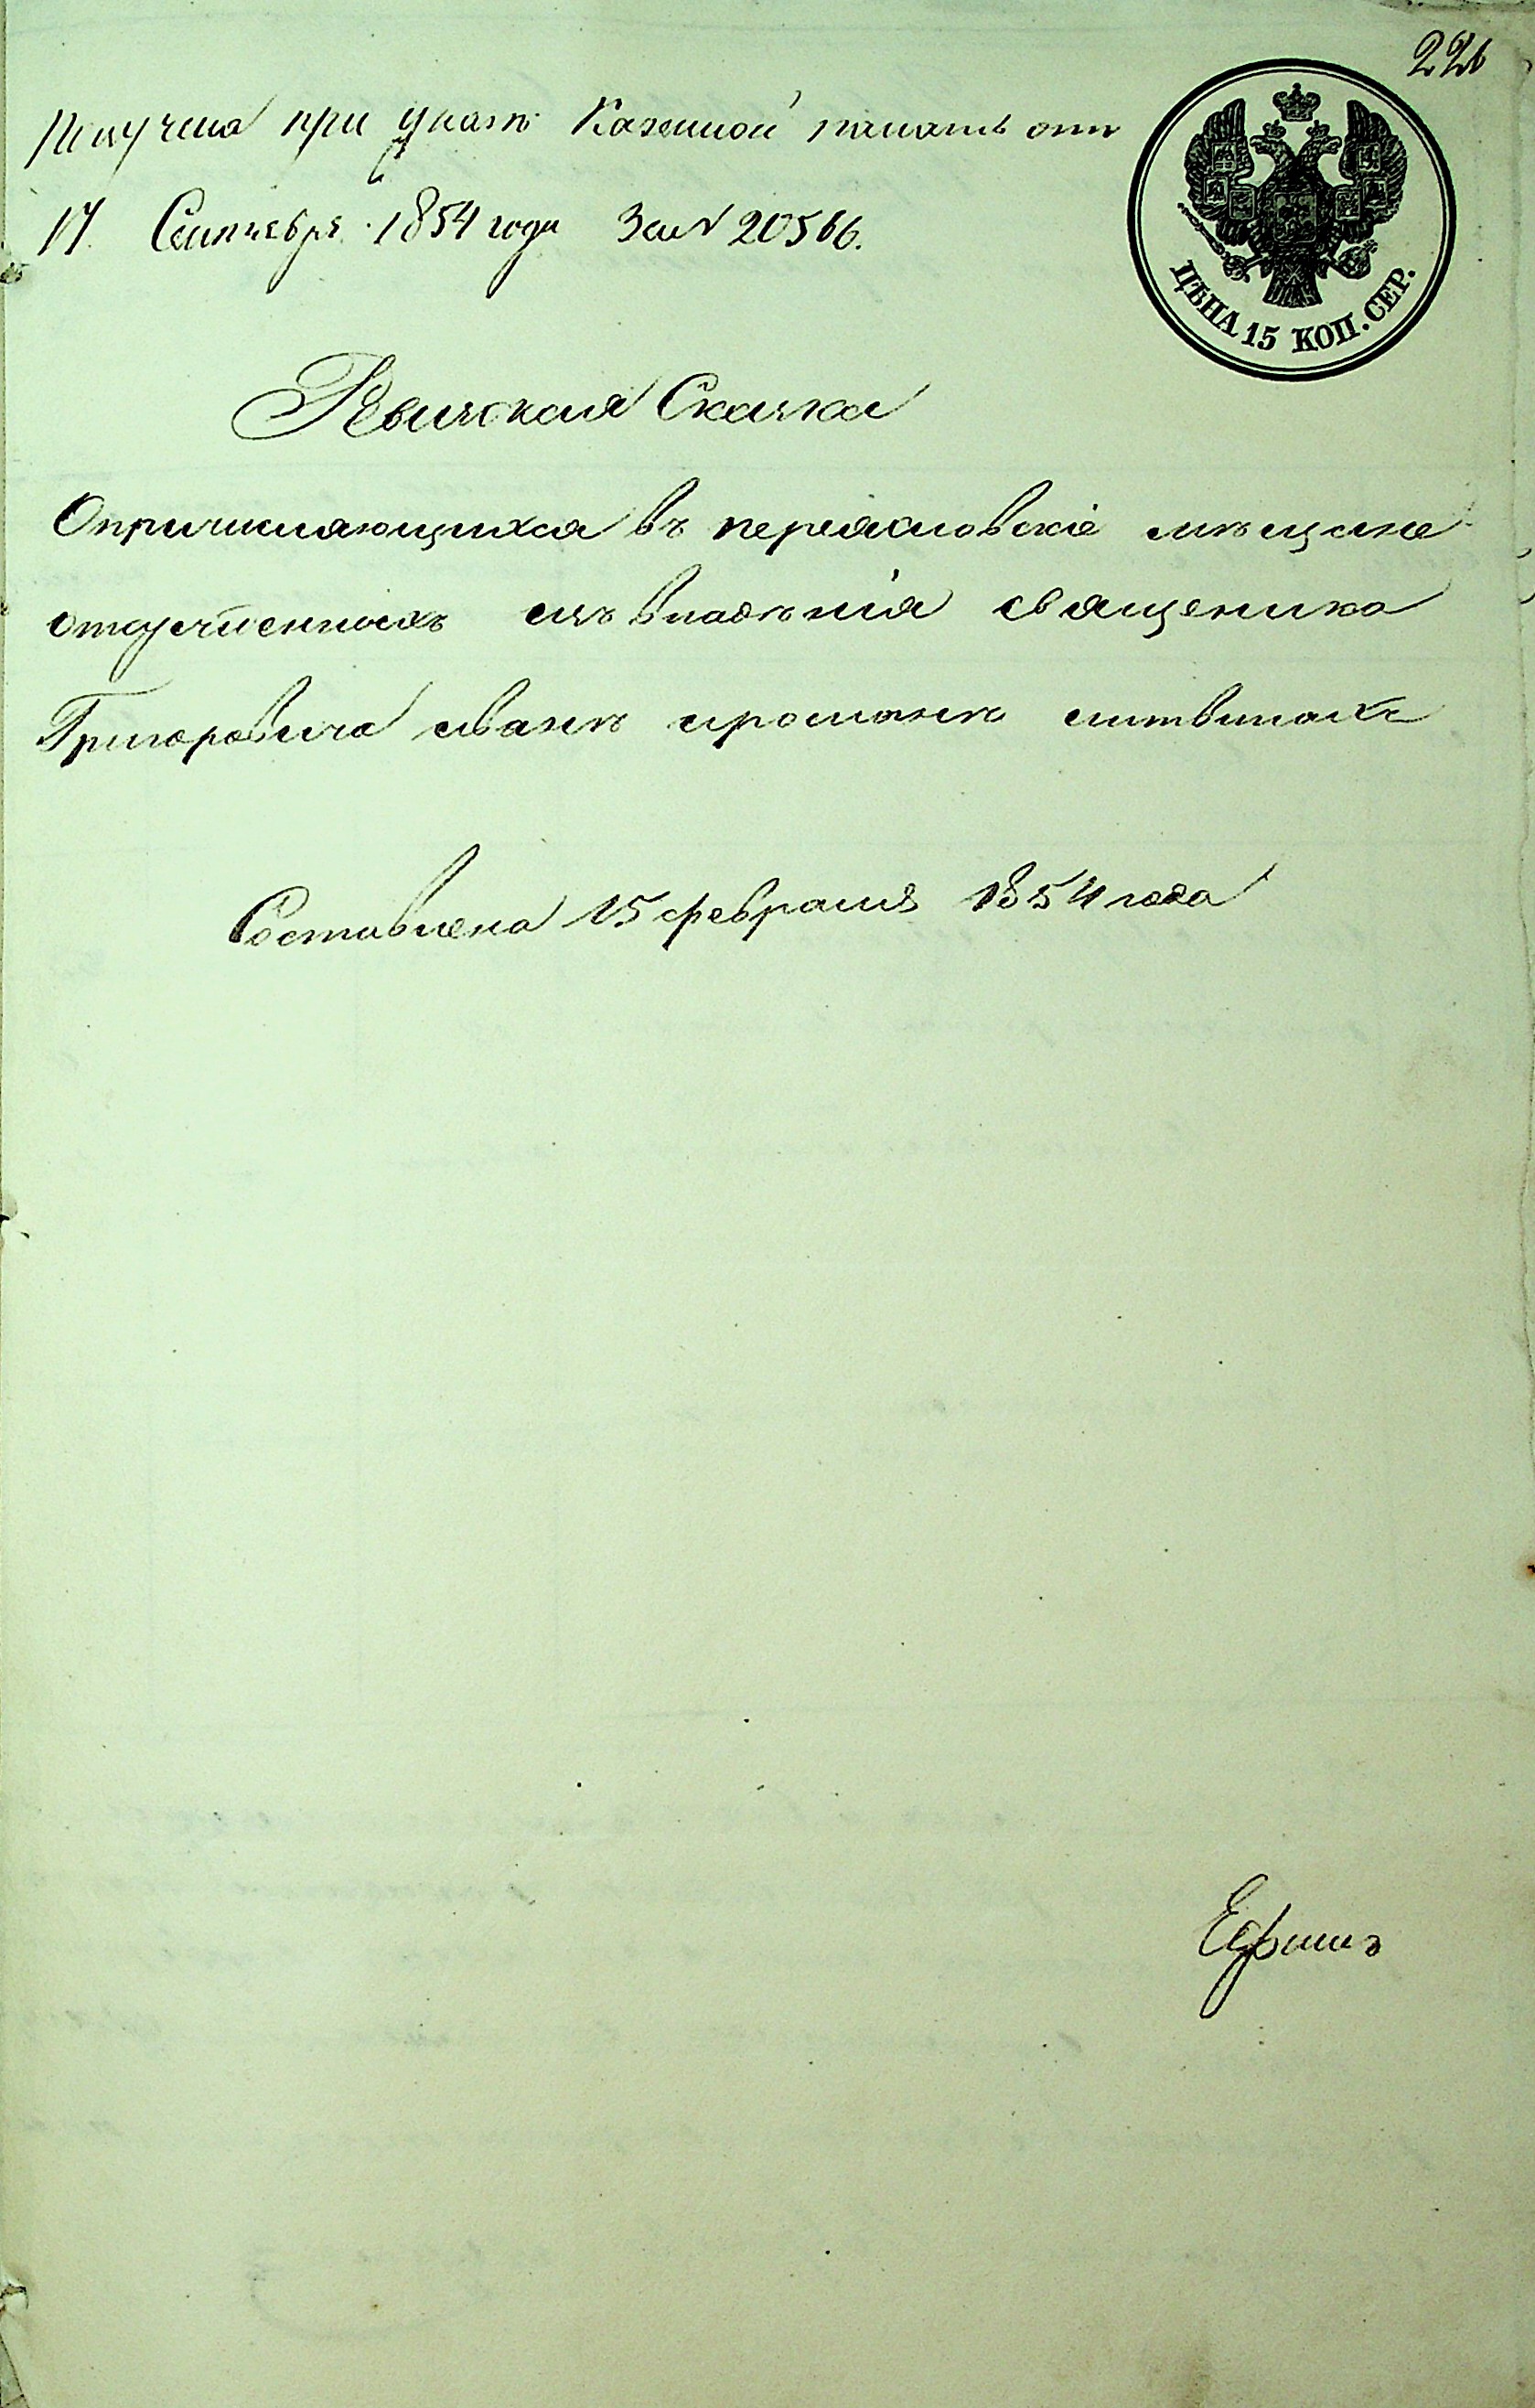 226
Получена при указѣ Казенной палаты отъ
17 Сентебря 1854 года За № 20566.
ЦѢНА 15 КОП. СЕР.
Ревизская Сказка
Опричисляющихся въ переясловскіе мѣщане
отпущенныхъ изъ владѣнія священика
Григоровича иванѣ ироманѣ литвинахъ
Составлена 15 февраля 1854 года